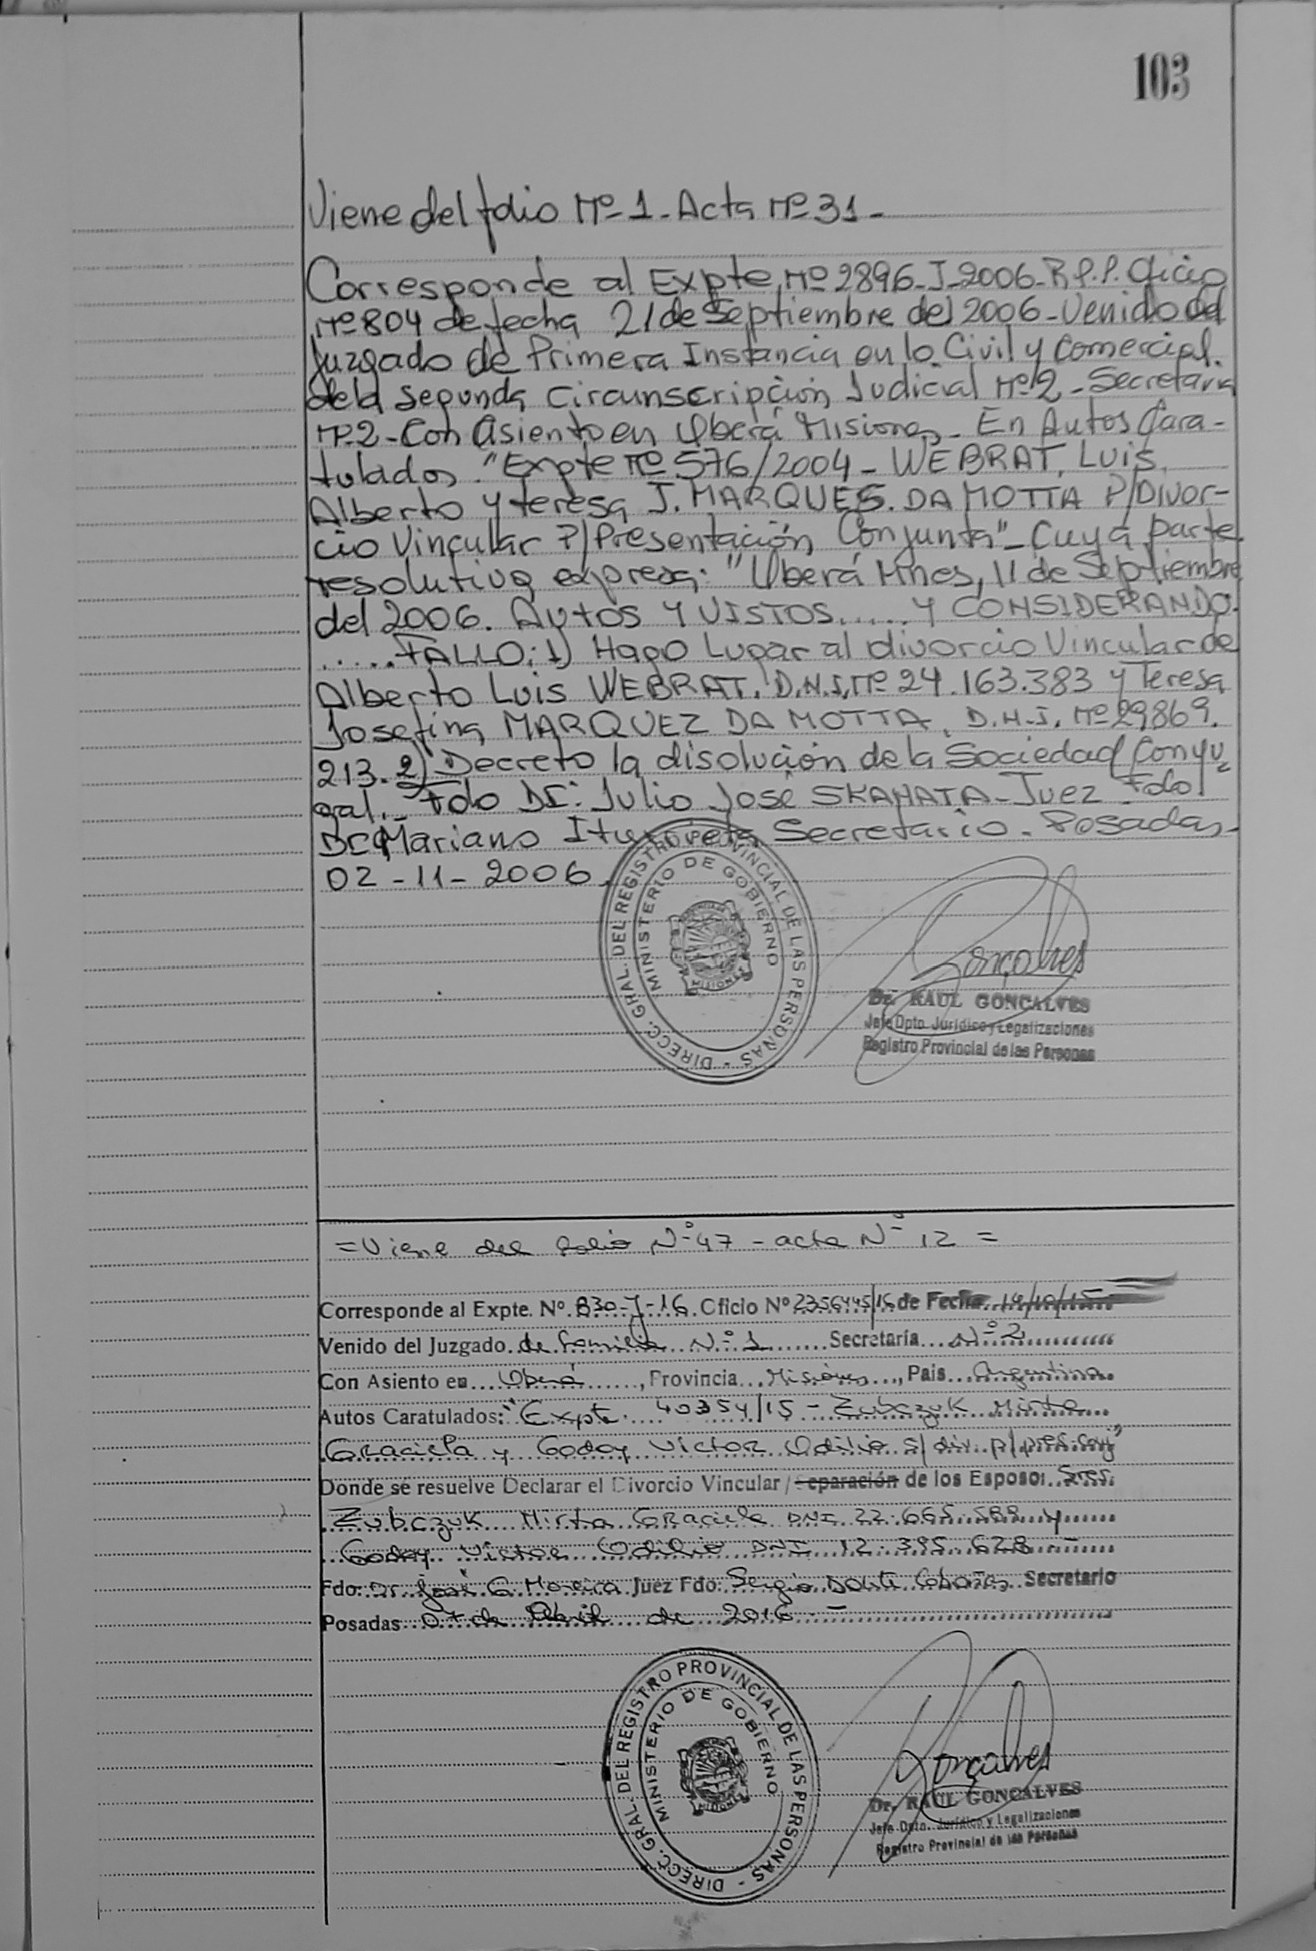 103
Viene del folio Nº 1 - Acta Nº 31 -
Corresponde al Expte Nº 2896-J-2006-R.P.P. Oficio
Nº 804 de fecha 21 de Septiembre del 2006 - Venido del
Juzgado de Primera Instancia en lo Civil y Comercial.
de la Segunda Circunscripción Judicial Nº 2 - Secretaria
Nº 2 - Con Asiento en Oberá Misiones - En Autos Cara-
tulados "Expte Nº 576/2004 - WEBRAT, Luis
Alberto y Teresa J. MARQUES. DA MOTTA P/Divor-
cio Vincular P/Presentación Conjunta" - Cuya parte
resolutiva expresa: "Oberá Mnes, 11 de Septiembre
del 2006. Autos Y VISTOS...... Y CONSIDERANDO.
.....FALLO: 1) Hago Lugar al divorcio Vincular de
Alberto Luis WEBRAT. D.N.I, Nº 24.163.383 y Teresa
Josefina MARQUEZ DA MOTTA, D.N.I. Nº 29869.
213. 2) Decreto la disolución de la Sociedad Conyu-
gal. - Fdo Dr: Julio José SKAHATA - Juez - Fdo
Dr Mariano Secretario. Posadas,-
02-11-2006.
DIRECC. GRAL. DEL REGISTRO PROVINCIAL DE LAS PERSONAS -
MINISTERIO DE GOBIERNO
MISIONES
Gonçalves
Dr. RAUL GONCALVES
Jefe Dpto. Jurídico y Legalizaciones
Registro Provincial de las Personas
= Viene del folio Nº 47 - acta Nº 12 =
Corresponde al Expte. Nº. 830-J-16. Oficio Nº 2356445/15 de Fecha 14/10/15
Venido del Juzgado de Familia Nº 1 Secretaría Nº 2
Con Asiento en Oberá, Provincia Misiones, Pais Argentina
Autos Caratulados: "Expte. 40354/15 - Zubczuk Mirta
Graciela y Godoy Victor Odilio s/div. p/pres. conj"
Donde se resuelve Declarar el Divorcio Vincular / Separación de los Esposos: Sres.
Zubczuk Mirta Graciela DNI 22.665.588 y
Godoy Victor Odilio DNI 12.395.628 -
Fdo: Dr José G. Moreira Juez Fdo: Sergio Dante Cobañez Secretario
Posadas 07 de Abril de 2016 -
DIRECC. GRAL. DEL REGISTRO PROVINCIAL DE LAS PERSONAS -
MINISTERIO DE GOBIERNO
MISIONES
Gonçalves
Dr. RAUL GONCALVES
Jefe Dpto. Jurídico y Legalizaciones
Registro Provincial de las Personas